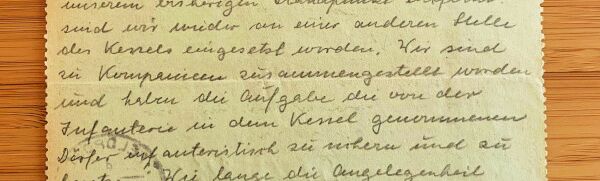 unserem bisherigen Standpunkt
sind wir wieder an einer anderen Stelle
des Kessels eingesetzt worden. Wir sind
zu Kompanieen zusammengestellt worden
und haben die Aufgabe die von der
Infanterie in dem Kessel genommenen
Dörfer infanteristisch zu sichern und zu
Wie lange die Angelegenheit